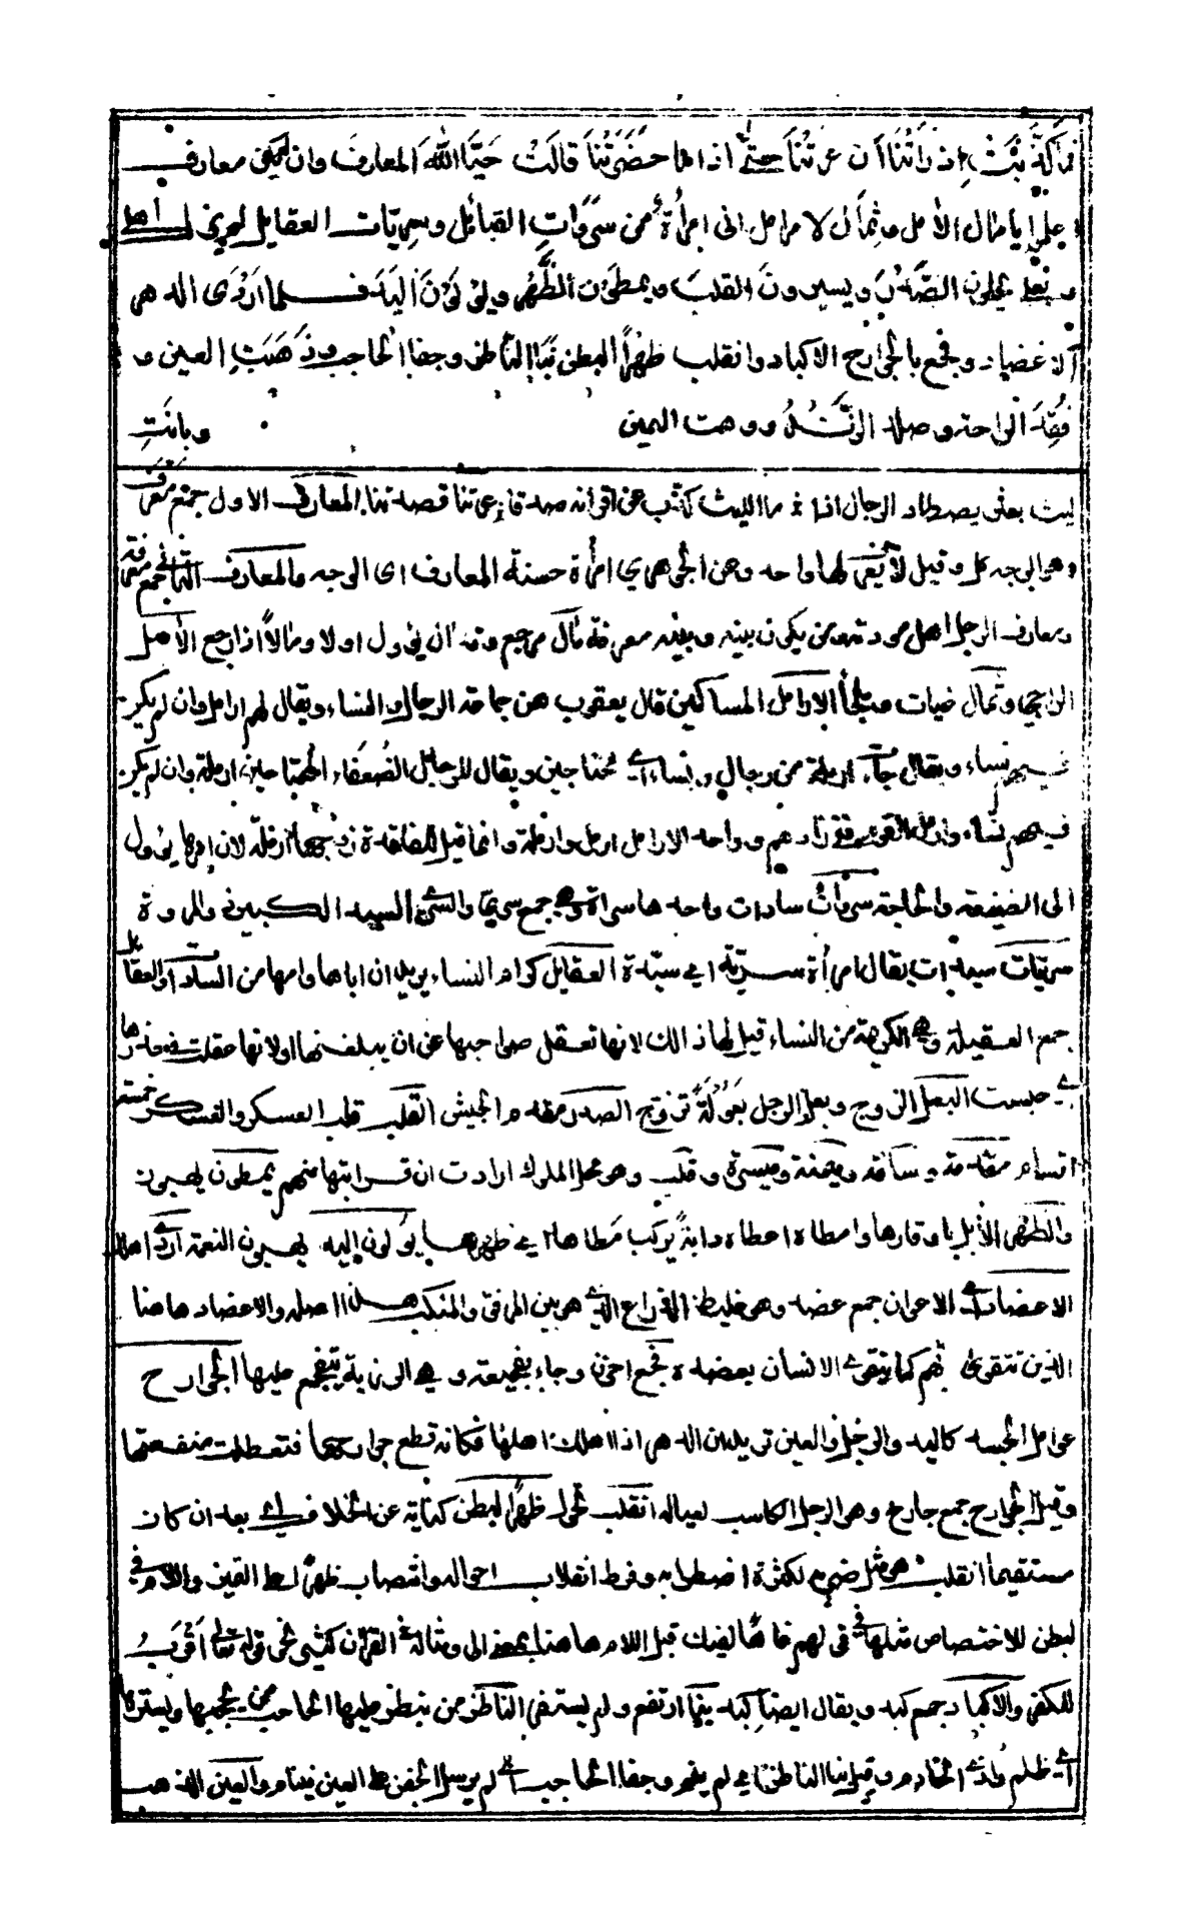 فما كذبت إذ رأتنا أن عرتنا حتى اذا ما حضرتنا قالت حيا الله المعارف وان لم يكن معارف
اعلموا يا مآل الآمل وثمال الارامل اني امرأة من سروات القبائل وسريات العقايل لم يزل اهلي
وبعلي يحلون الصدر ويسيرون القلب ويمطون الظهر ويولون اليد فلما اردى الدهر
الاعضاد وفجع بالجوارح الاكباد وانقلب ظهرا لبطن نبا الناظر وجفا الحاجب وذهبت العين و
فقد الراحة وصلد الزند ووهت اليمين وبانت
وهو الوجه كل وقيل لا يعرف لها واحد وعن الجوهري امرأة حسنة المعارف اى الوجه والمعارف
ومعارف الرجل اهل مودته ومن يكون بينه وبينه معرفة مآل مرجع وقد آل يؤول اولا ومآلا اذا رجع الآمل
الراجي وثمال غياث وملجأ الارامل المساكين قال يعقوب هن جماعة الرجال والنساء ويقال لهم ارامل وان لم يكن
فيهم نساء ويقال جاءت ارملة من رجال ونساء اى محتاجين ويقال للرجال الضعفاء المحتاجين ارملة وان لم يكن
فيهم نساء وارمل القوم نفد زادهم وواحد الارامل ارمل وارملة وانما قيل للفاقدة زوجها ارملة لان امرها يؤول
الى الضيعة والحاجة سروات سادات واحدها سراة وهي جمع سري والسري السيد الكبير ذو المروة
سريات سيدات يقال امرأة سرية اى سيدة العقايل كرام النساء يريد ان اباها وامها من السادات والعقائل
جمع العقيلة وهي الكريمة من النساء قيل لها ذالك لانها تعقل صواحبها عن ان يبلغنها او لانها عقلت في خدرها
اي حبست البعل الزوج وبعل الرجل بعولة تزوج الصدر مقدم الجيش القلب قلب العسكر والعسكر خمسة
اقسام مقدمة وساقة وميمنة وميسرة وقلب وهو محل الملوك ارادت ان قرابتها منهم يمطون يهبون
والظهر الابل يا وقارها وامطاه اعطاه دابة يركب مطاها اى ظهرها يولون اليد يهبون النعمة اردى اهلك
الاعضاد الاعوان جمع عضد وهو غليظ الذراع الذي هو بين المرفق والمنكب هذا اصله والاعضاد هاهنا
الذين تتقوى بهم كما يتقوى الانسان بعضده فجع احزن وجاء بفجيعة وهي الرزية يتفجع عليها الجوارح
عوامل الجسد كاليد والرجل والعين تريد ان الدهر اذا اهلك اهلها فكانه قطع جوارحها فتعطلت منفعتها
وقيل الجوارح جمع جارح وهو الرجل الكاسب لعياله انقلب تحول ظهرا لبطن كناية عن الخلاف اى بعد ان كان
مستقيما انقلب هو مثل ضرب لكثرة اضطرابه وفرط انقلاب احواله وانتصاب ظهرا على التميز واللام في
لبطن للاختصاص مثلها في قولهم فاها لفيك قيل اللام هاهنا بمعنى الى ومثاله في القرآن كثير نحو قوله تعالى اقرب
للكفر والاكباد جمع كبد ويقال ايضا كبد نبا ارتفع ولم يستقر الناظر من ينظر عليها الحاجب من يحجبها ويسترها
اى ظلم واذى الخادم وقيل نبا الناظر اى لم ينم وجفا الحاجب اى لم يرسل الجفن على العين فينام والعين الذهب